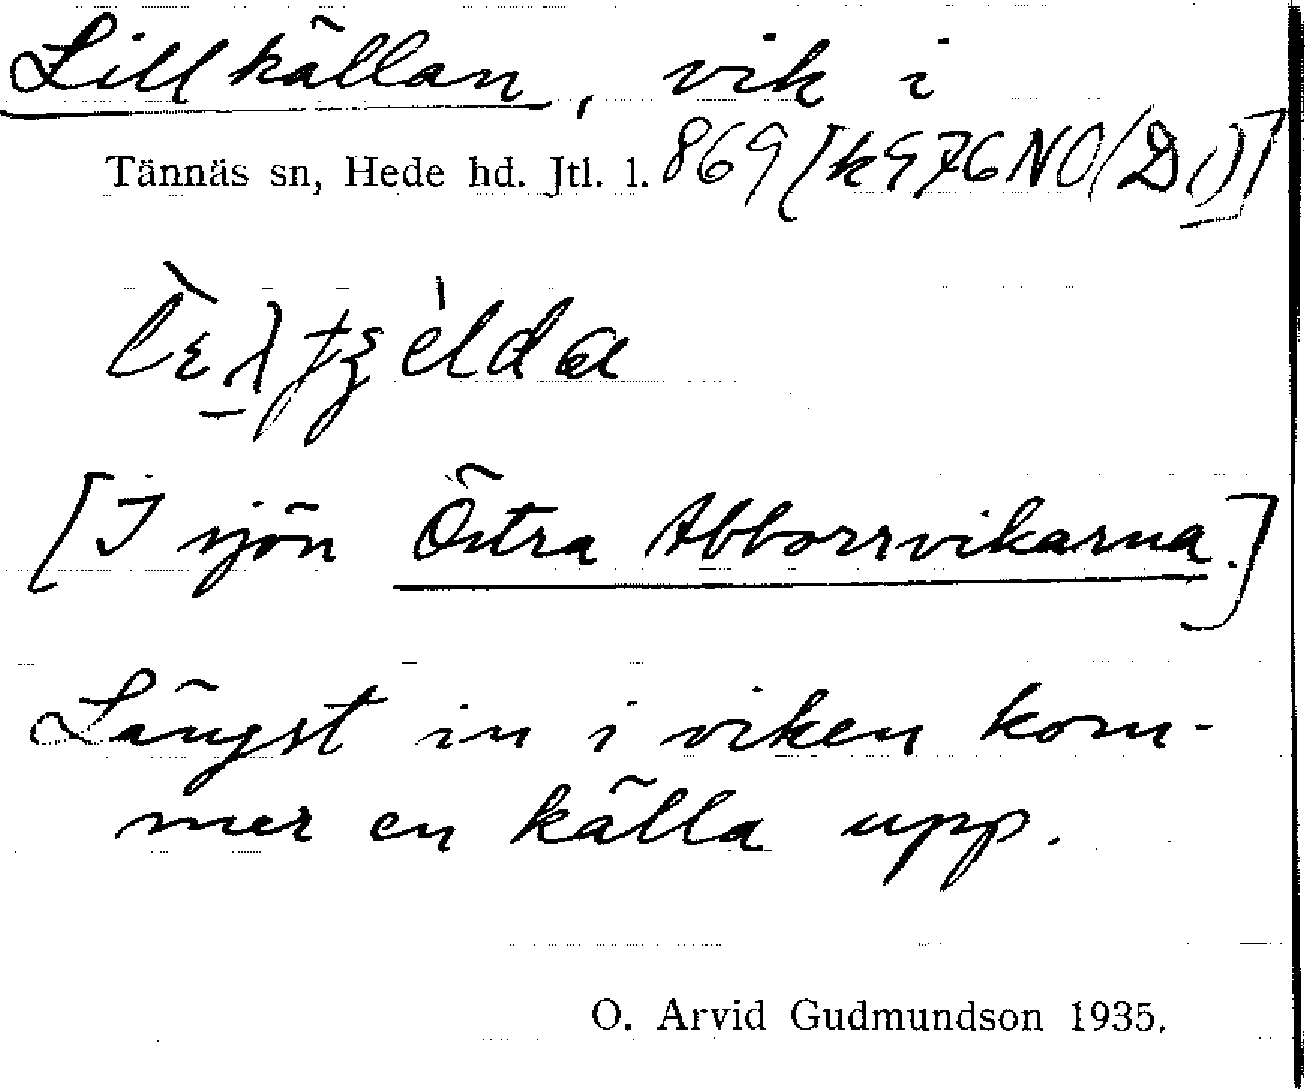 Lillkällan, vik i
Tännäs sn, Hede hd. Jtl. l. 869 [k976NO(D1)]
[I sjön Östra Abborrvikarna.]
Längst in i viken kom-
mer en källa upp.
O. Arvid Gudmundson 1935.